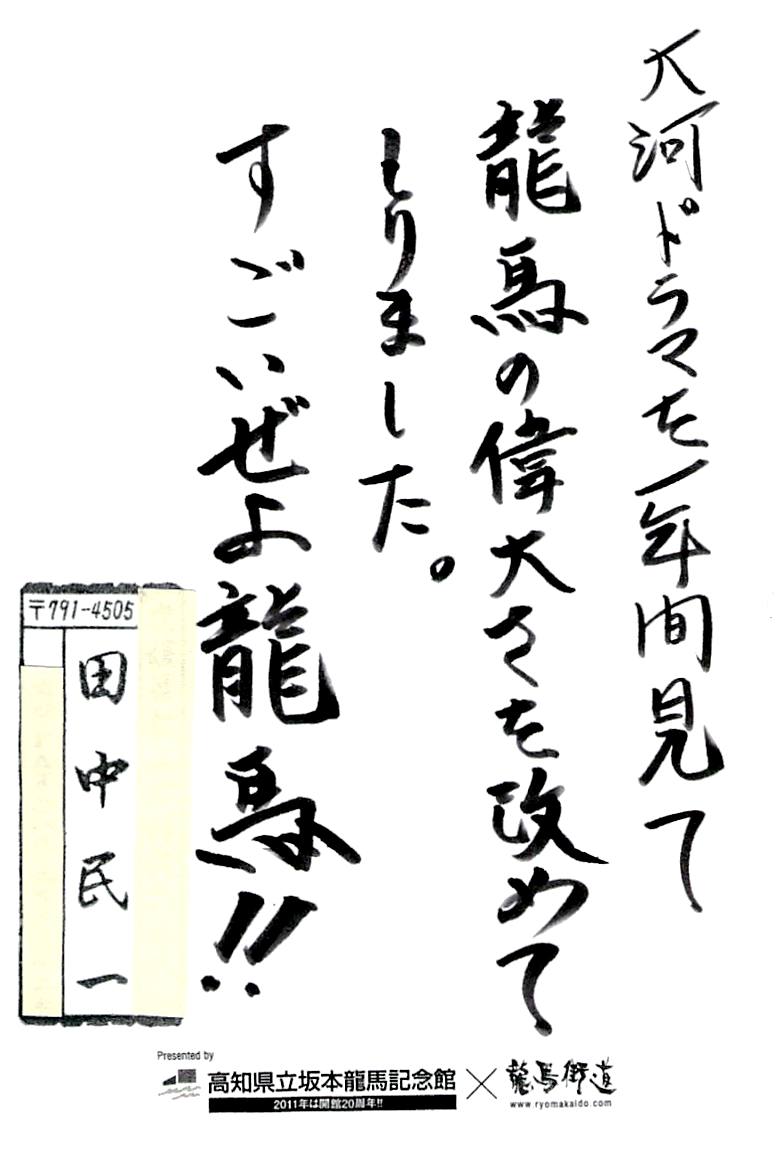 大河ドラマを一年間見て
龍馬の偉大さを改めて
しりました。
すごいぜよ龍馬!!
〒791-4505
田中民一
Presented by
高知県立坂本龍馬記念館
2011年は開館20周年!!
×
龍馬街道
www.ryomakaido.com